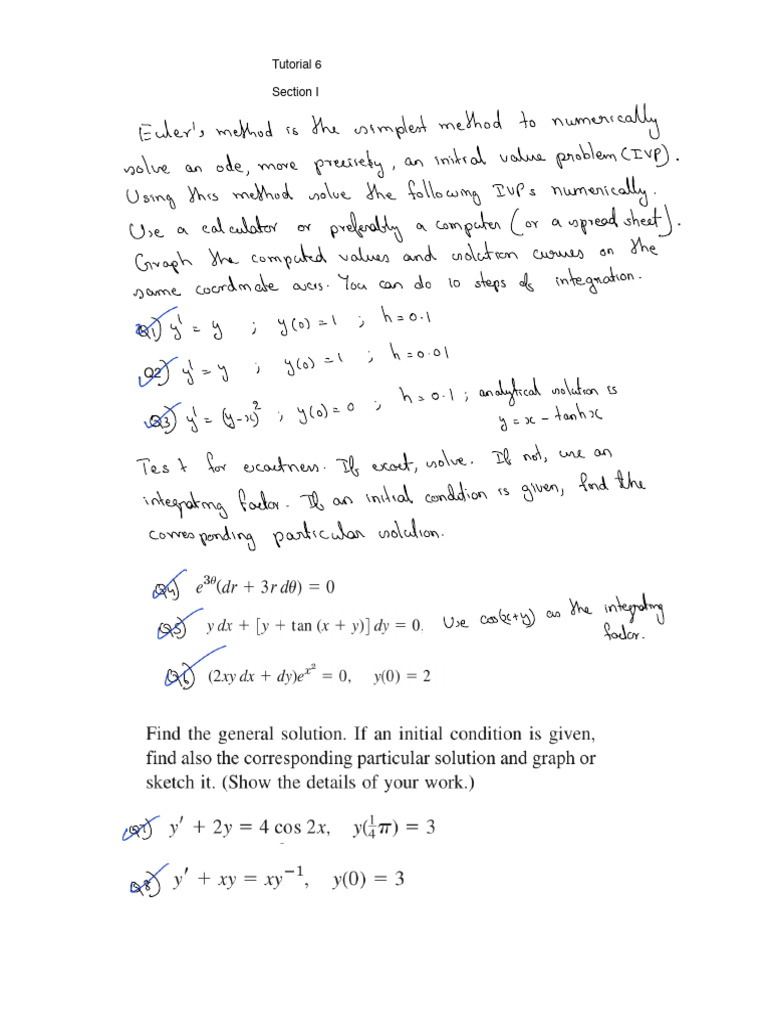 Tutorial 6
Section I
Euler's method is the simplest method to numerically
solve an ode, more precisely, an initial value problem (IVP).
Using this method solve the following IVPs numerically.
Use a calculator or preferably a computer (or a spread sheet).
Graph the computed values and solution curves on the
same coordinate axes. You can do 10 steps of integration.
Q1) y' = y ; y(0) = 1 ; h = 0.1
Q2) y' = y ; y(0) = 1 ; h = 0.01
Q3) y' = (y-x)² ; y(0) = 0 ; h = 0.1 ; analytical solution is
y = x - tanh x
Test for exactness. If exact, solve. If not, use an
integrating factor. If an initial condition is given, find the
corresponding particular solution.
Q4) e^{3θ}(dr + 3r dθ) = 0
Q5) y dx + [y + tan (x + y)] dy = 0. Use cos(x+y) as the integrating
factor.
Q6) (2xy dx + dy)e^{x²} = 0, y(0) = 2
Find the general solution. If an initial condition is given,
find also the corresponding particular solution and graph or
sketch it. (Show the details of your work.)
Q7) y′ + 2y = 4 cos 2x, y(¼π) = 3
Q8) y′ + xy = xy⁻¹, y(0) = 3